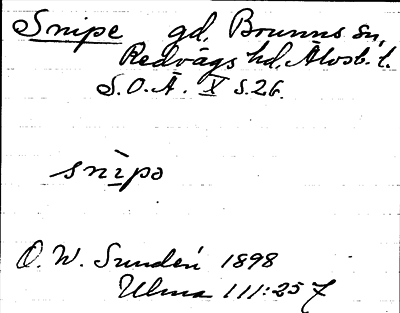 Snipe gd, Brunns sn,
Redvägs hd, Älvsb. l.
S.O.Ä. X s.26.
snìpə
O. W. Sundén 1898
Ulma 111:257